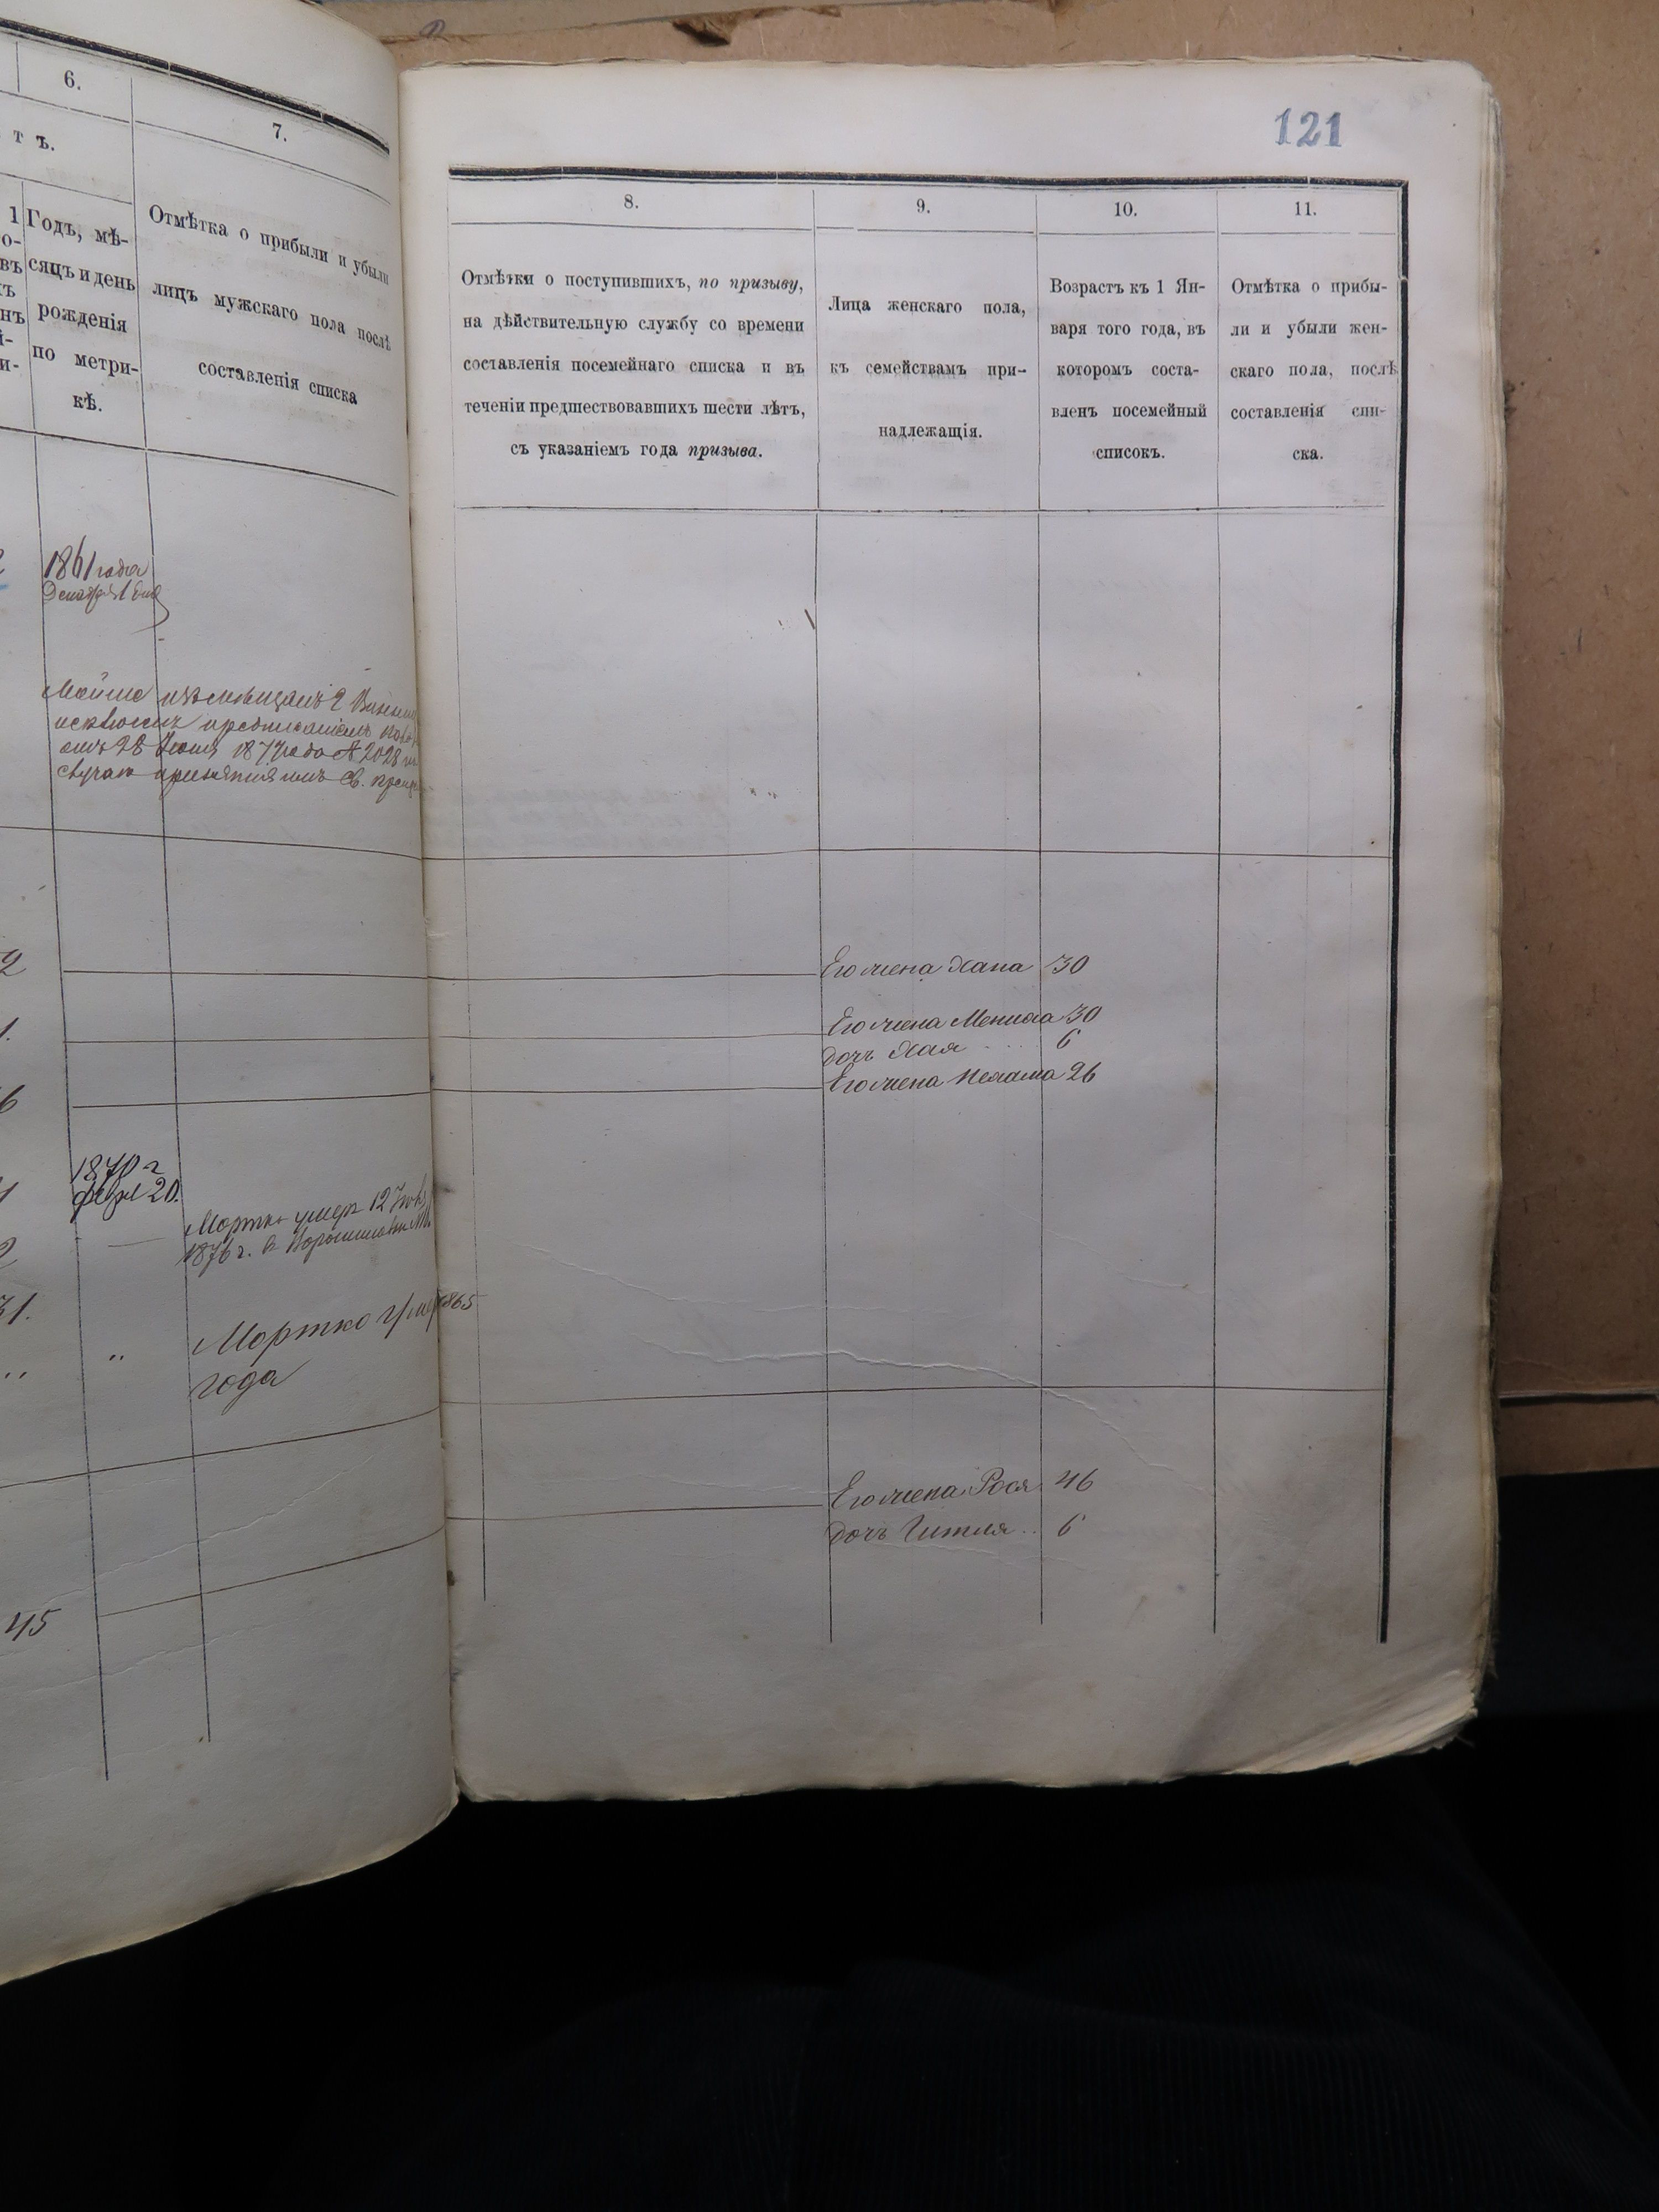 6.
7.
т ъ.
1
Годъ, мѣ-
сяцъ и день
рожденія
по метри-
кѣ.
Отмѣтка о прибыли и убыли
лицъ мужскаго пола послѣ
составленія списка
1861 года
Декабря 1 дня
Мойше изъ мѣщанъ г
исключенъ предписаніемъ
отъ 28 Іюня 1877 года № 2028
случаю принятія имъ Св.
2
1.
6
1870 г
февр 20.
Мортко умеръ 12
1876 г. в
2
31.
Мортко умер 1865
года
45
121
8.
9.
10.
11.
Отмѣтки о поступившихъ, по призыву,
на дѣйствительную службу со времени
составленія посемейнаго списка и въ
теченіи предшествовавшихъ шести лѣтъ,
съ указаніемъ года призыва.
Лица женскаго пола,
къ семействамъ при-
надлежащія.
Возрастъ къ 1 Ян-
варя того года, въ
которомъ соста-
вленъ посемейный
списокъ.
Отмѣтка о прибы-
ли и убыли жен-
скаго пола, послѣ
составленія спи-
ска.
Его жена Хана 30
Его жена 30
дочь Хая 6
Его жена 26
Его жена Рося 46
дочь Гитля 6